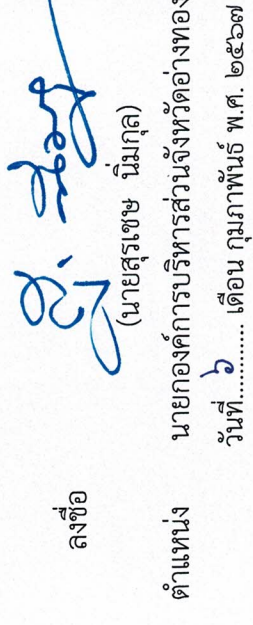 ลงชื่อ
(นายสุรเชษ นิ่มกุล)
ตำแหน่ง นายกองค์การบริหารส่วนจังหวัดอ่างทอง
วันที่.....๖....... เดือน กุมภาพันธ์ พ.ศ. ๒๕๖๗